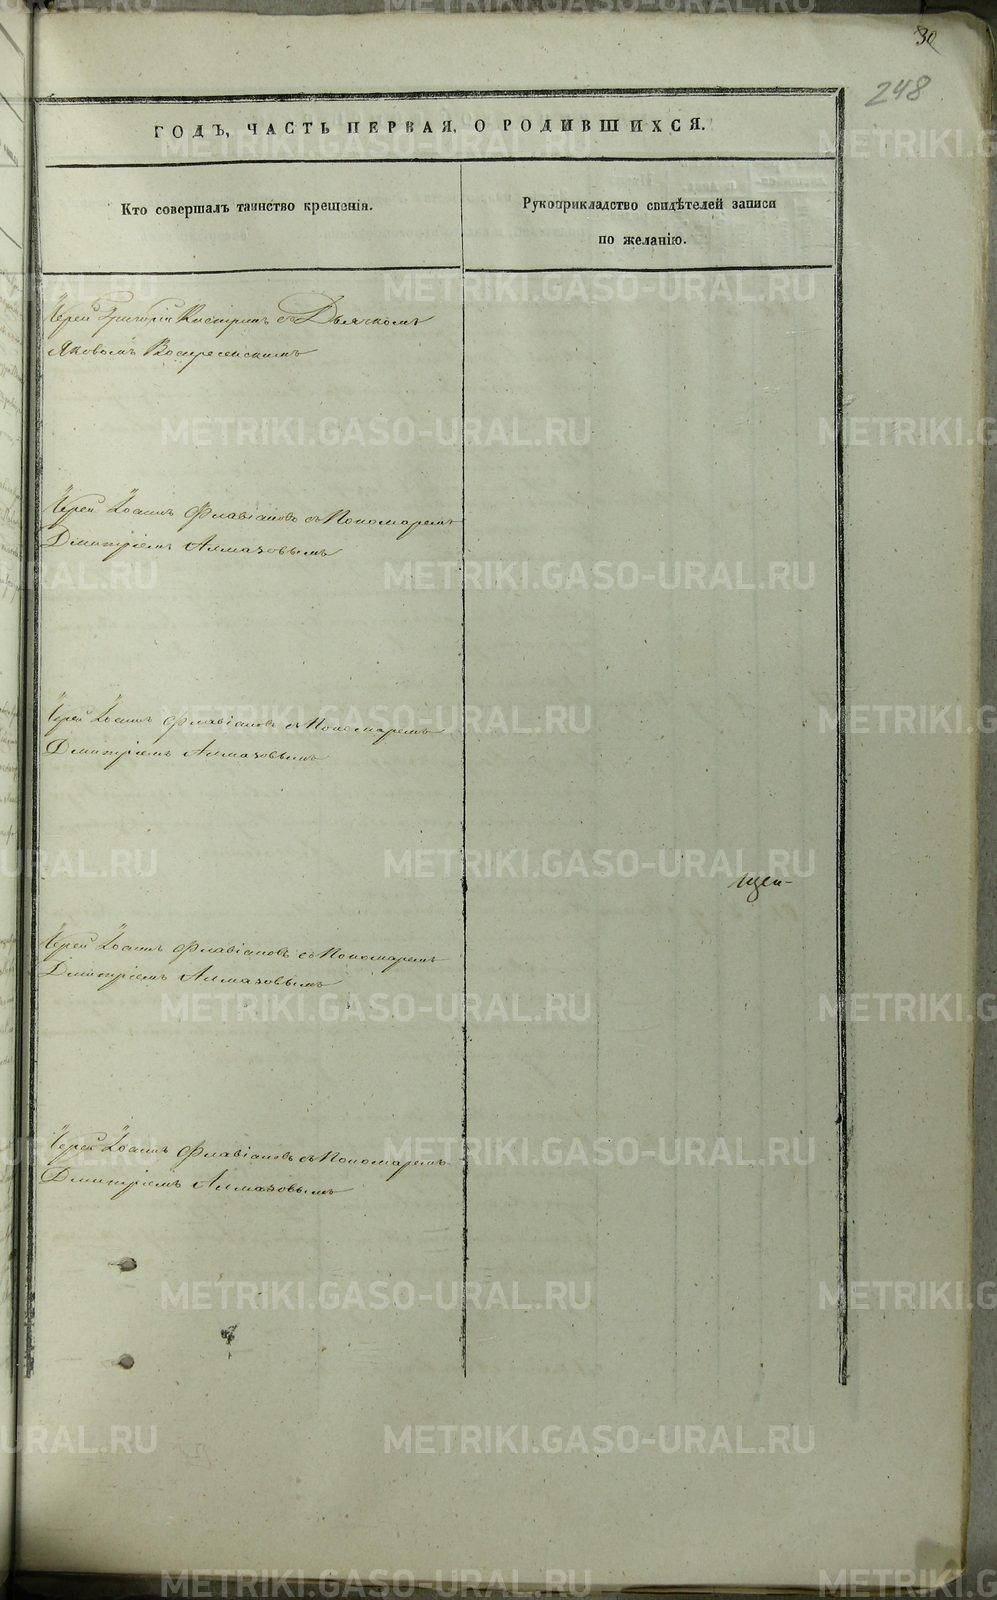 30
248
ГОДЪ, ЧАСТЬ ПЕРВАЯ, О РОДИВШИХСЯ.
Кто совершалъ таинство крещенія.
Рукоприкладство свидѣтелей записи
по желанію.
Іерей Григорій съ Дьячкомъ
Яковомъ Воскресенскимъ
Іерей Іоаннъ Флавіановъ съ Пономаремъ
Дмитріемъ Алмазовымъ
Іерей Іоаннъ Флавіановъ съ Пономаремъ
Дмитріемъ Алмазовымъ
Іерей Іоаннъ Флавіановъ съ Пономаремъ
Дмитріемъ Алмазовымъ
Іерей Іоаннъ Флавіановъ съ Пономаремъ
Дмитріемъ Алмазовымъ
METRIKI.GASO-URAL.RU